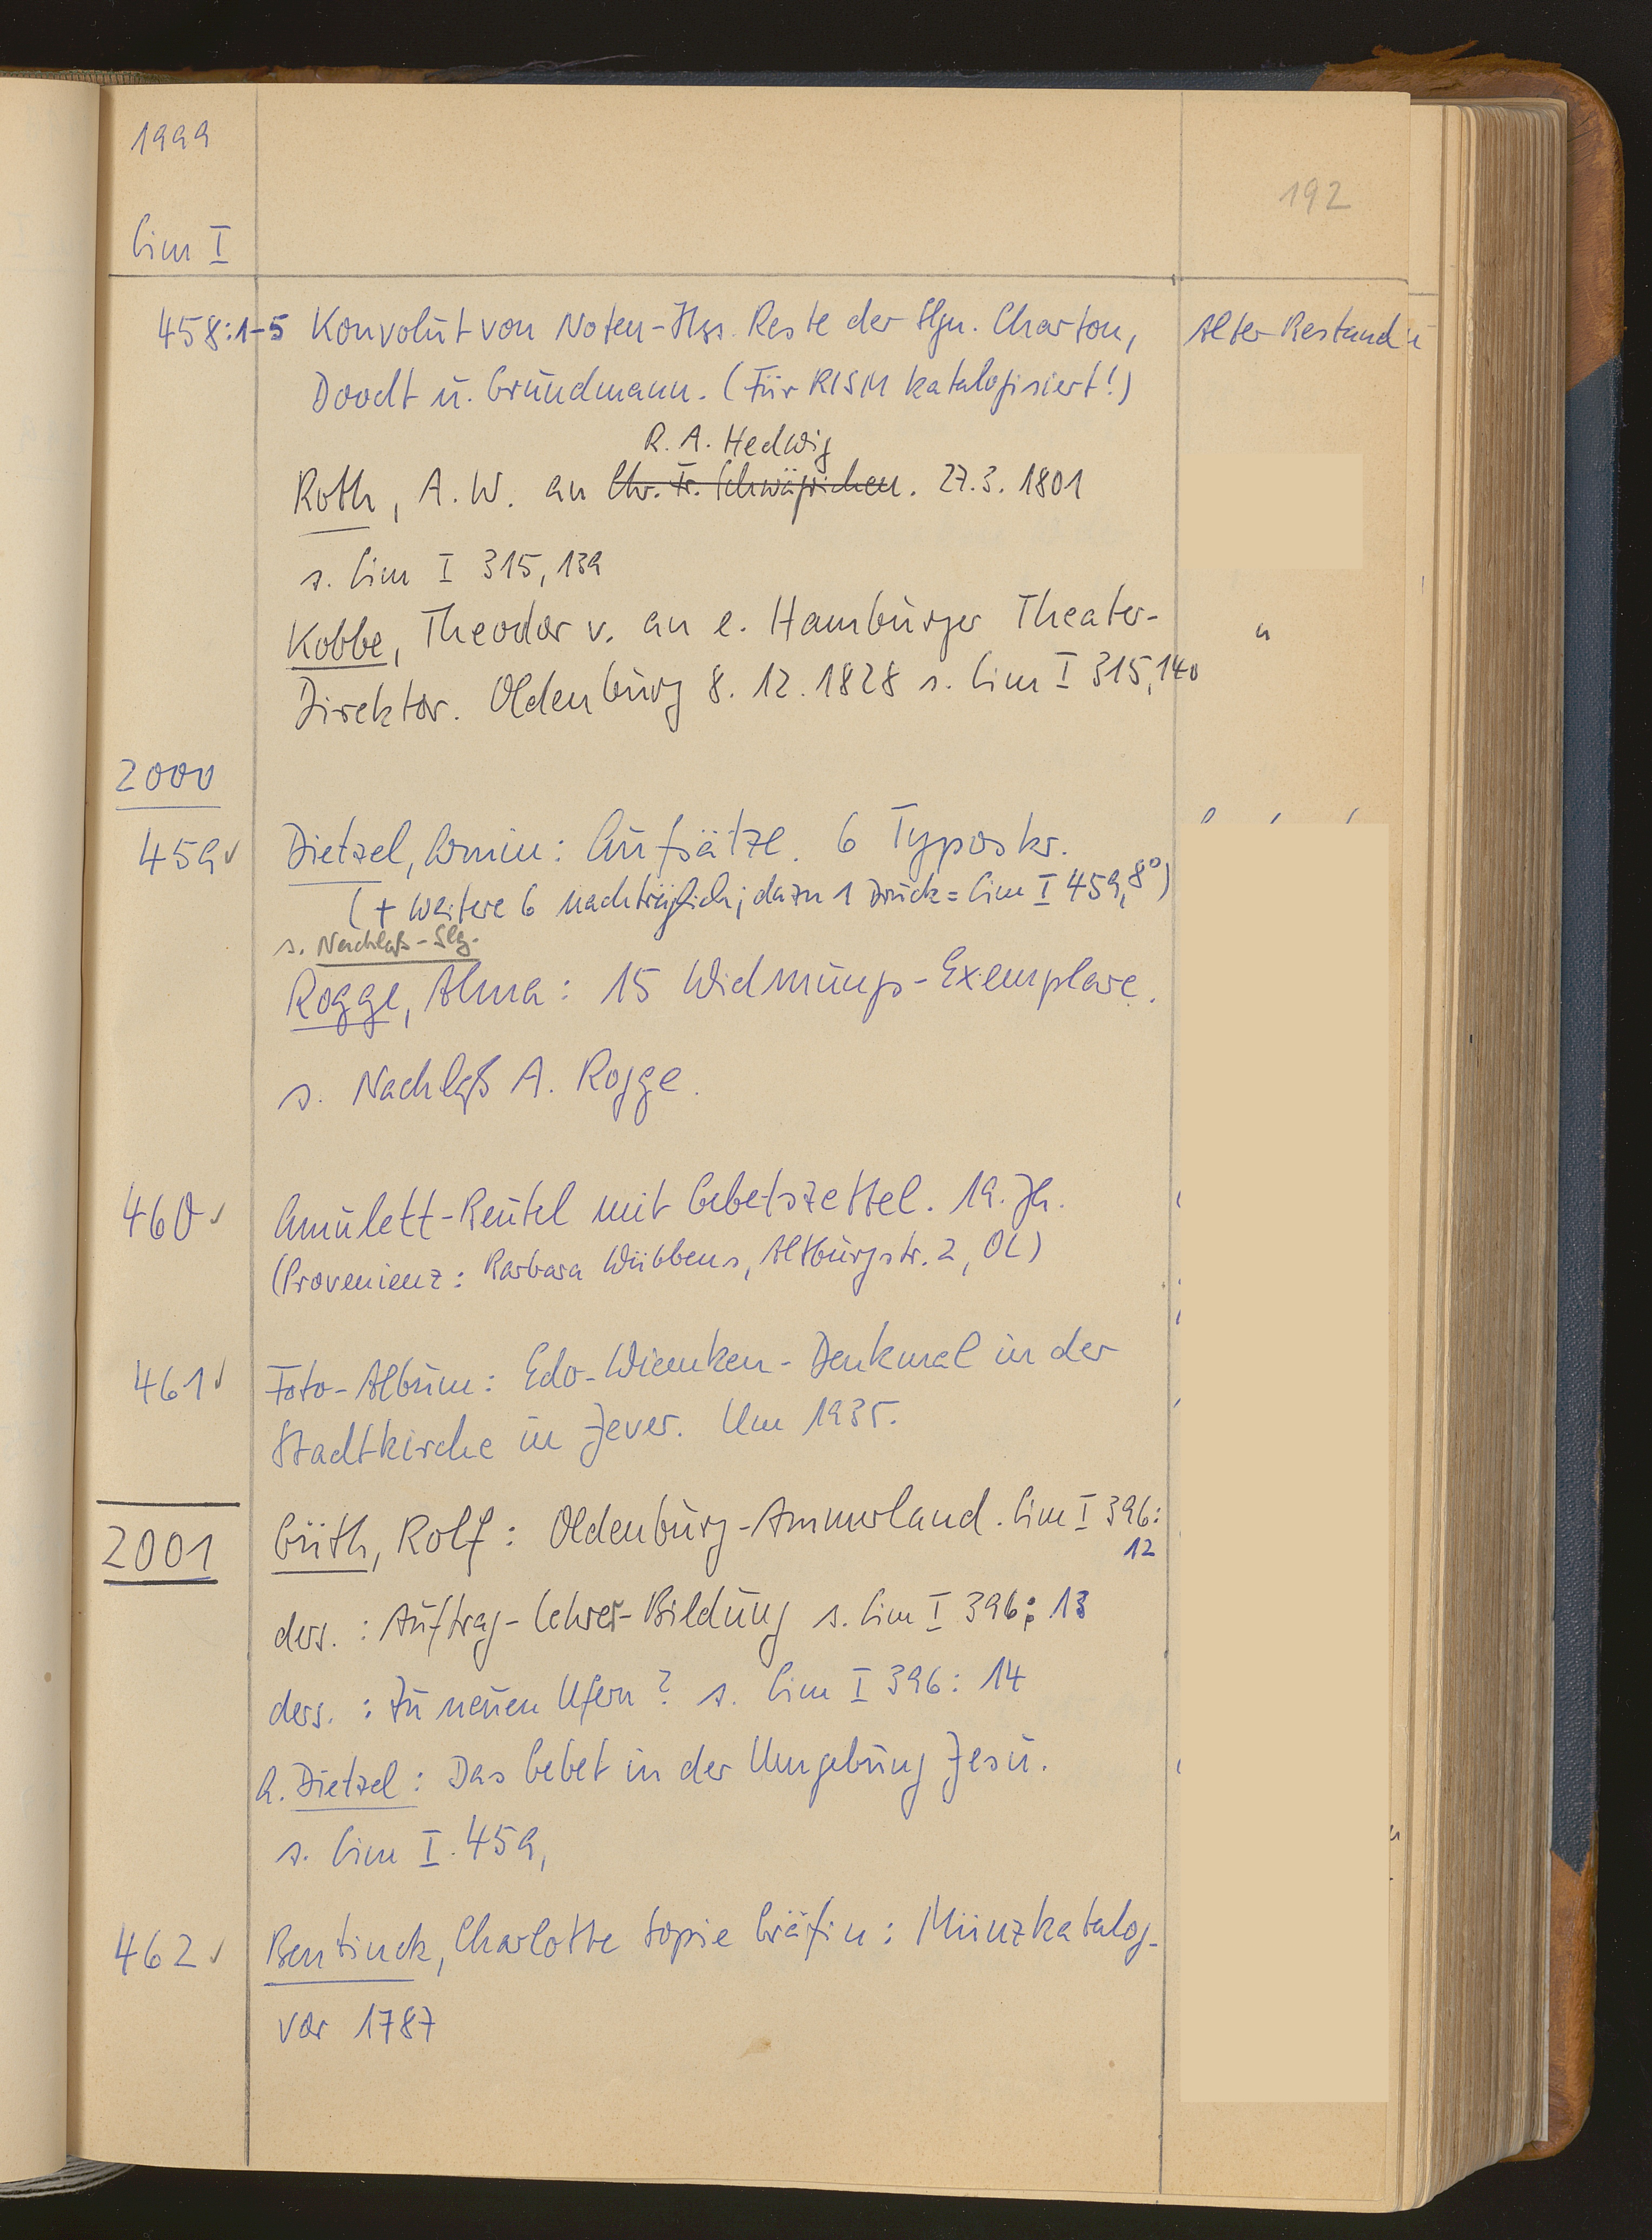 1999
192
Cim I
458:1-5 Konvolut von Noten-Hss. Reste der Slgn. Charton, Alter Bestand
Doodt u. Grundmann. (Für RISM katalogisiert!)
R. A. Hedwig
Roth, A. W. an Chr. Fr. Schwägrichen. 27.3.1801
s. Cim I 315,139
Kobbe, Theodor v. an e. Hamburger Theater- "
Direktor. Oldenburg 8.12.1828 s. Cim I 315,140
2000
459 ✓ Dietzel, Armin: Aufsätze. 6 Typoskr.
(+ weitere 6 nachträglich; dazu 1 Druck = Cim I 459, 8°)
s. Nachlaß-Slg.
Rogge, Alma: 15 Widmungs-Exemplare.
s. Nachlaß A. Rogge.
460 ✓ Amulett-Beutel mit Gebetszettel. 19. Jh.
(Provenienz: Barbara Wübbens, Altburgstr. 2, OL)
461 ✓ Foto-Album: Edo-Wiemken-Denkmal in der
Stadtkirche in Jever. Um 1935.
2001 Güth, Rolf: Oldenburg-Ammerland. Cim I 396:
12
ders.: Auftrag-Lehrer-Bildung s. Cim I 396: 13
ders.: Zu neuen Ufern? s. Cim I 396: 14
A. Dietzel: Das Gebet in der Umgebung Jesu.
s. Cim I 459,
462 ✓ Bentinck, Charlotte Sopie Gräfin: Münzkatalog.
vor 1787